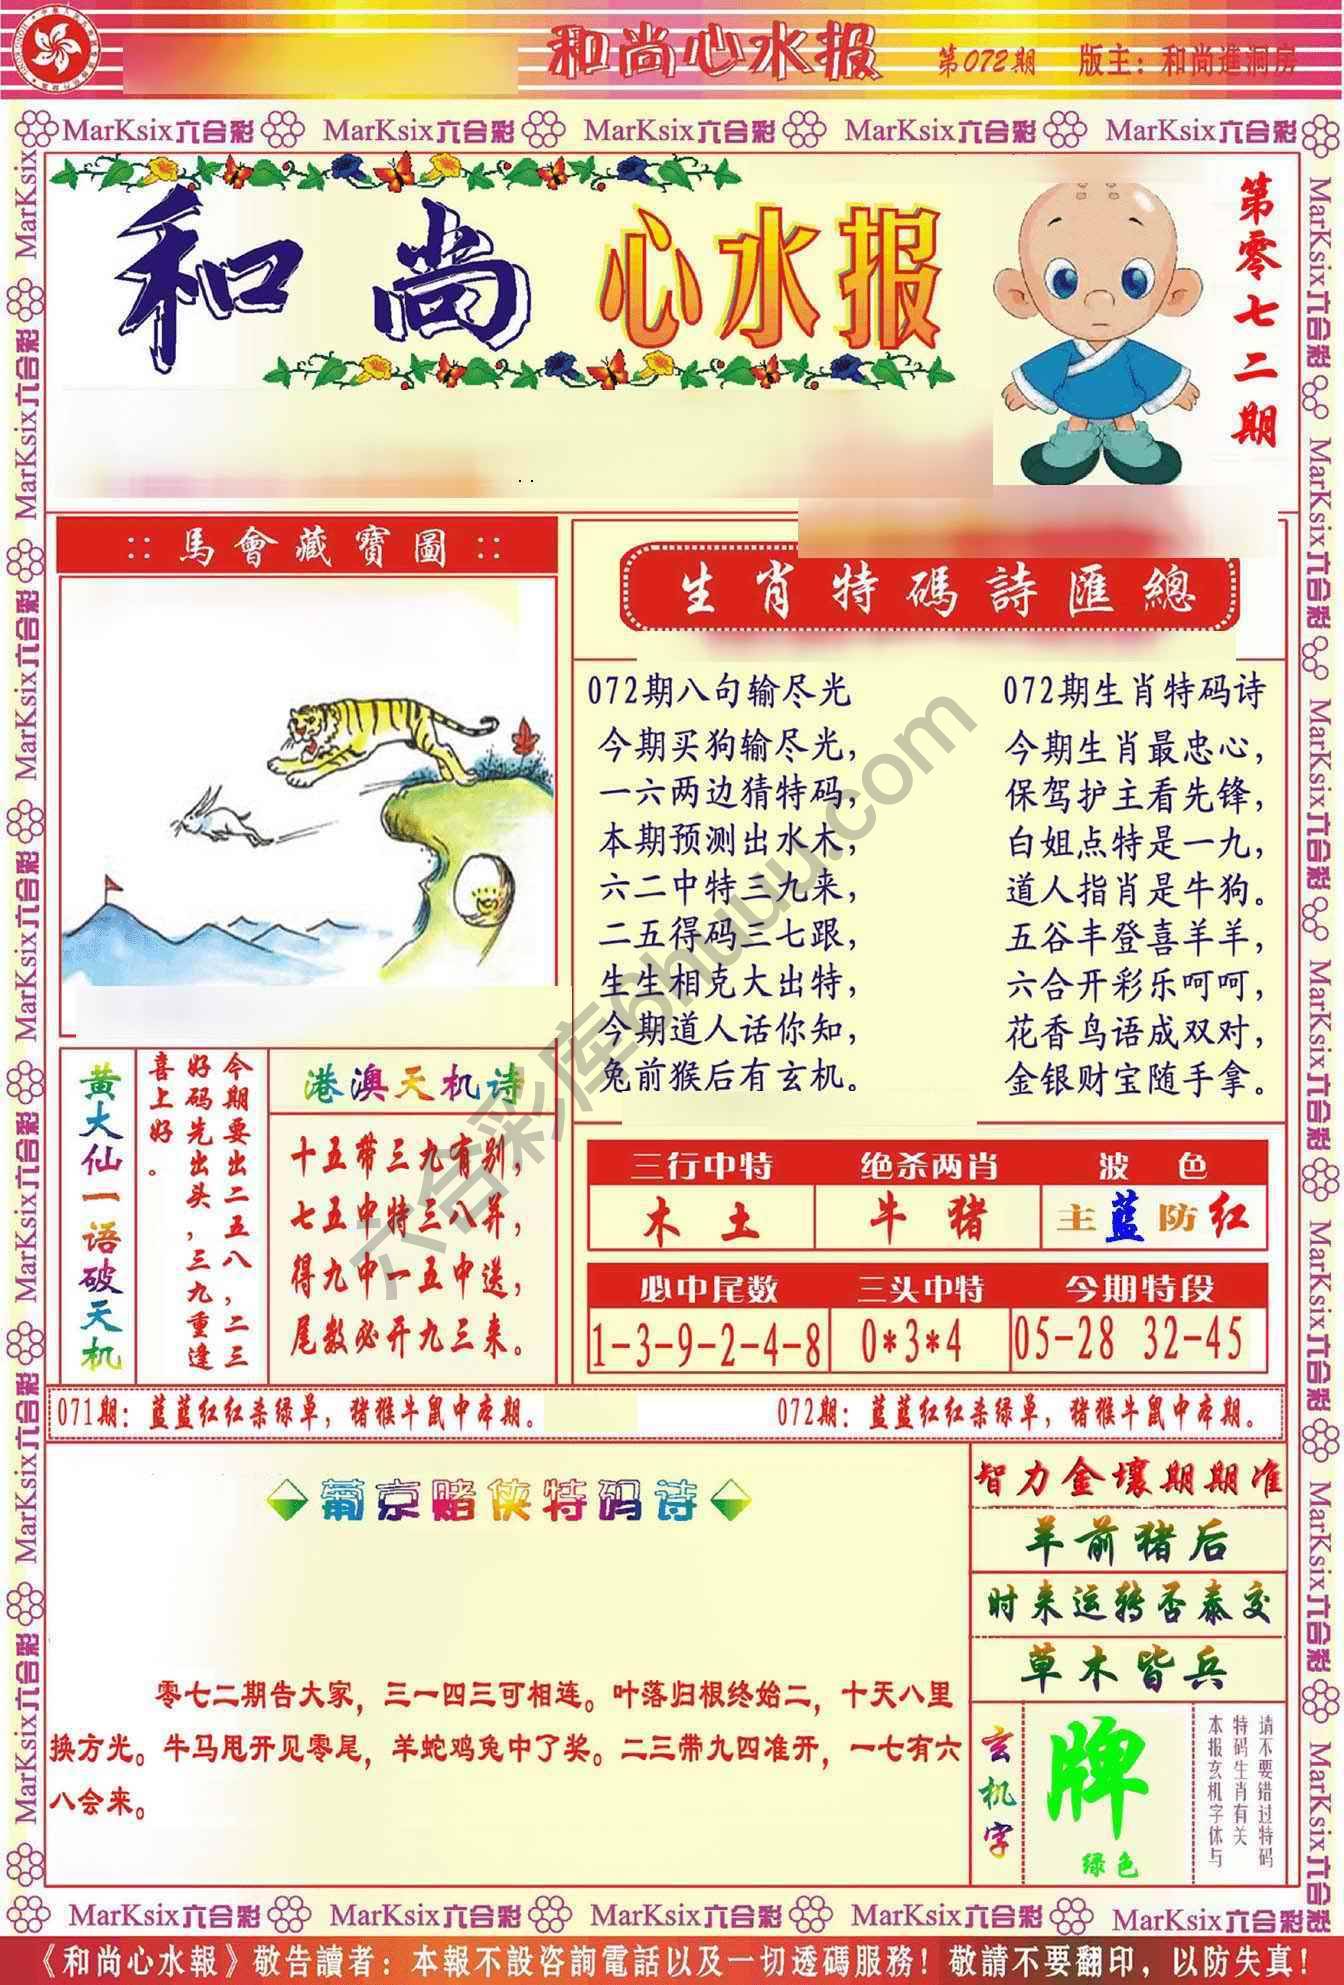 和尚心水报 第072期 版主：和尚進洞房
MarKsix六合彩 MarKsix六合彩 MarKsix六合彩 MarKsix六合彩 MarKsix六合彩
和尚心水报
第零七二期
::馬會藏寶圖::
生肖特碼詩匯總
072期八句输尽光
今期买狗输尽光，
一六两边猜特码，
本期预测出水木，
六二中特三九来，
二五得码三七跟，
生生相克大出特，
今期道人话你知，
兔前猴后有玄机。
072期生肖特码诗
今期生肖最忠心，
保驾护主看先锋，
白姐点特是一九，
道人指肖是牛狗。
五谷丰登喜羊羊，
六合开彩乐呵呵，
花香鸟语成双对，
金银财宝随手拿。
黄大仙一语破天机
今期要出二五八，二三
好码先出头，三九重逢
喜上好。
港澳天机诗
十五带三九有别，
七五中特三八并，
得九中一五中送，
尾数必开九三来。
三行中特 绝杀两肖 波色
木土 牛猪 主蓝防红
必中尾数 三头中特 今期特段
1-3-9-2-4-8 0*3*4 05-28 32-45
071期：蓝蓝红红杀绿单，猪猴牛鼠中本期。 072期：蓝蓝红红杀绿单，猪猴牛鼠中本期。
葡京赌侠特码诗
零七二期告大家，三一四三可相连。叶落归根终始二，十天八里
换方光。牛马甩开见零尾，羊蛇鸡兔中了奖。二三带九四准开，一七有六
八会来。
智力金壤期期准
羊前猪后
时来运转否泰交
草木皆兵
玄机字
牌
绿色
请不要错过特码
特码生肖有关
本报玄机字体与
六合彩库6huu.com
MarKsix六合彩 MarKsix六合彩 MarKsix六合彩 MarKsix六合彩 MarKsix六合彩
《和尚心水報》敬告讀者：本報不設咨詢電話以及一切透碼服務！敬請不要翻印，以防失真！